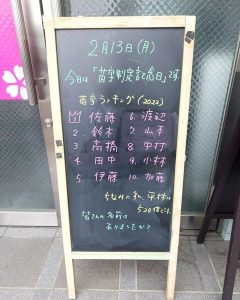 2月13日(月)
今日は「苗字制定記念日」です
苗字ランキング(2022)
1. 佐藤 6. 渡辺
2. 鈴木 7. 山本
3. 高橋 8. 中村
4. 田中 9. 小林
5. 伊藤 10. 加藤
ちなみに私、平林は
520位でした
皆さんの名前は
ありましたか?